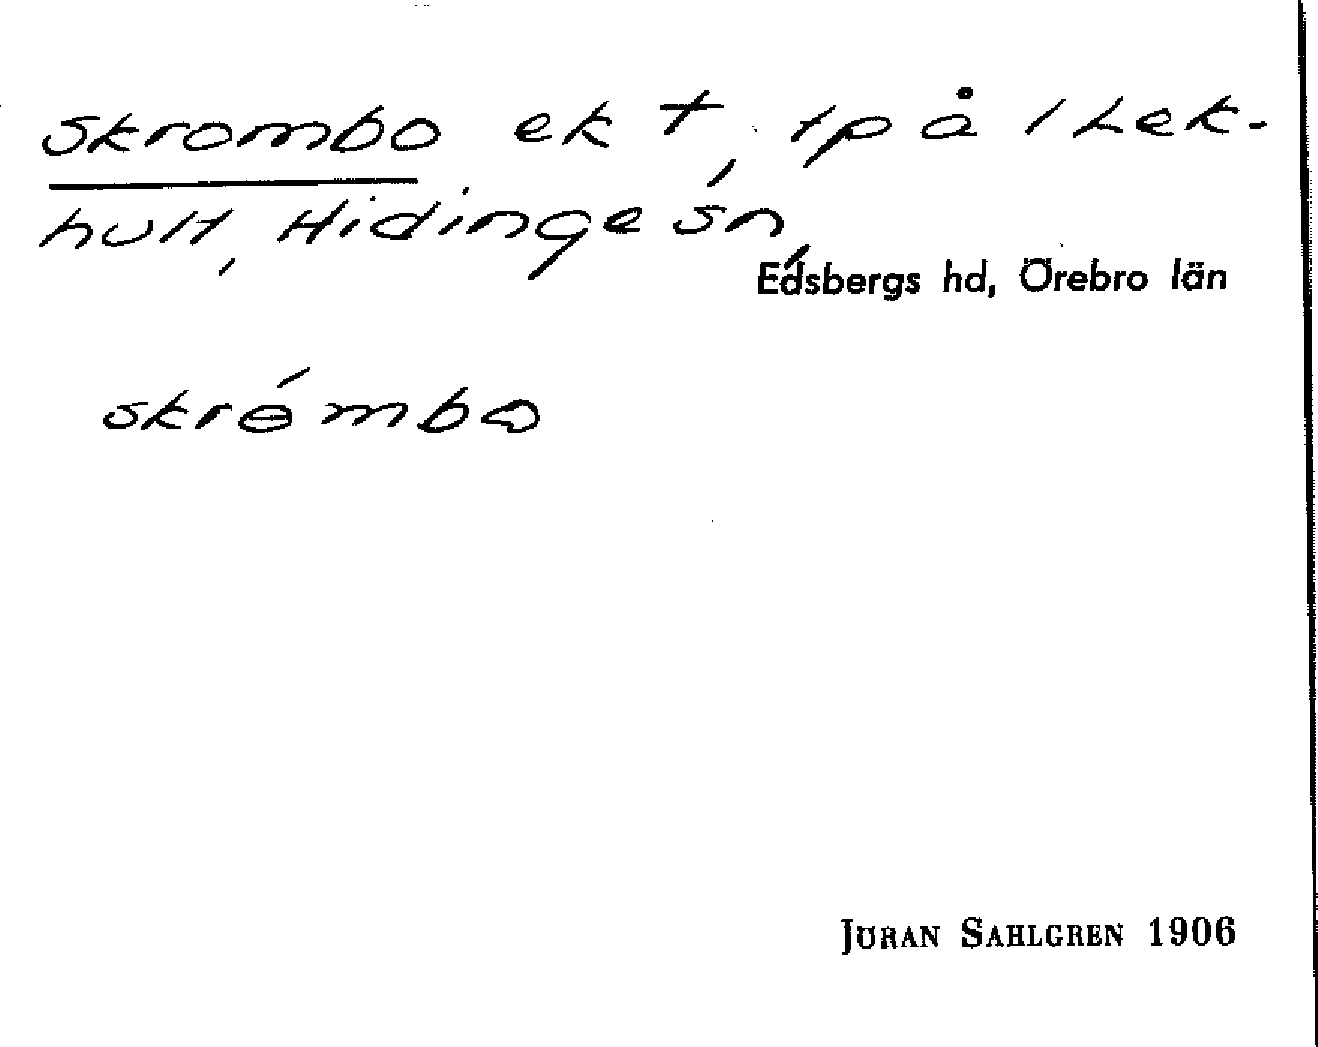 skrombo ek †, tpå i Lek-
hult, Hidinge sn,
Edsbergs hd, Örebro län
skrɵ́mbɷ
JÖRAN SAHLGREN 1906